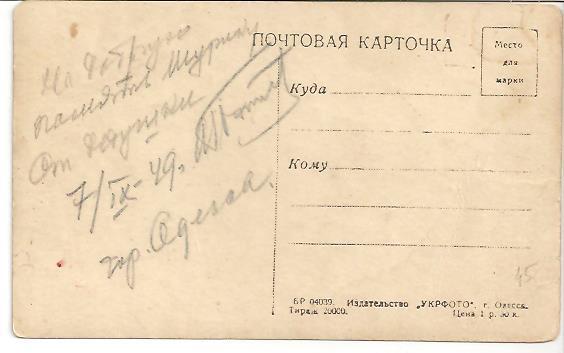 На добрую
память Шурику
От дедушки
7/IX-49.
гор. Одесса.
ПОЧТОВАЯ КАРТОЧКА
Место
для
марки
Куда
Кому
45
БР 04039. Издательство „УКРФОТО", г. Одесса.
Тираж 20000. Цена 1 р. 50 к.